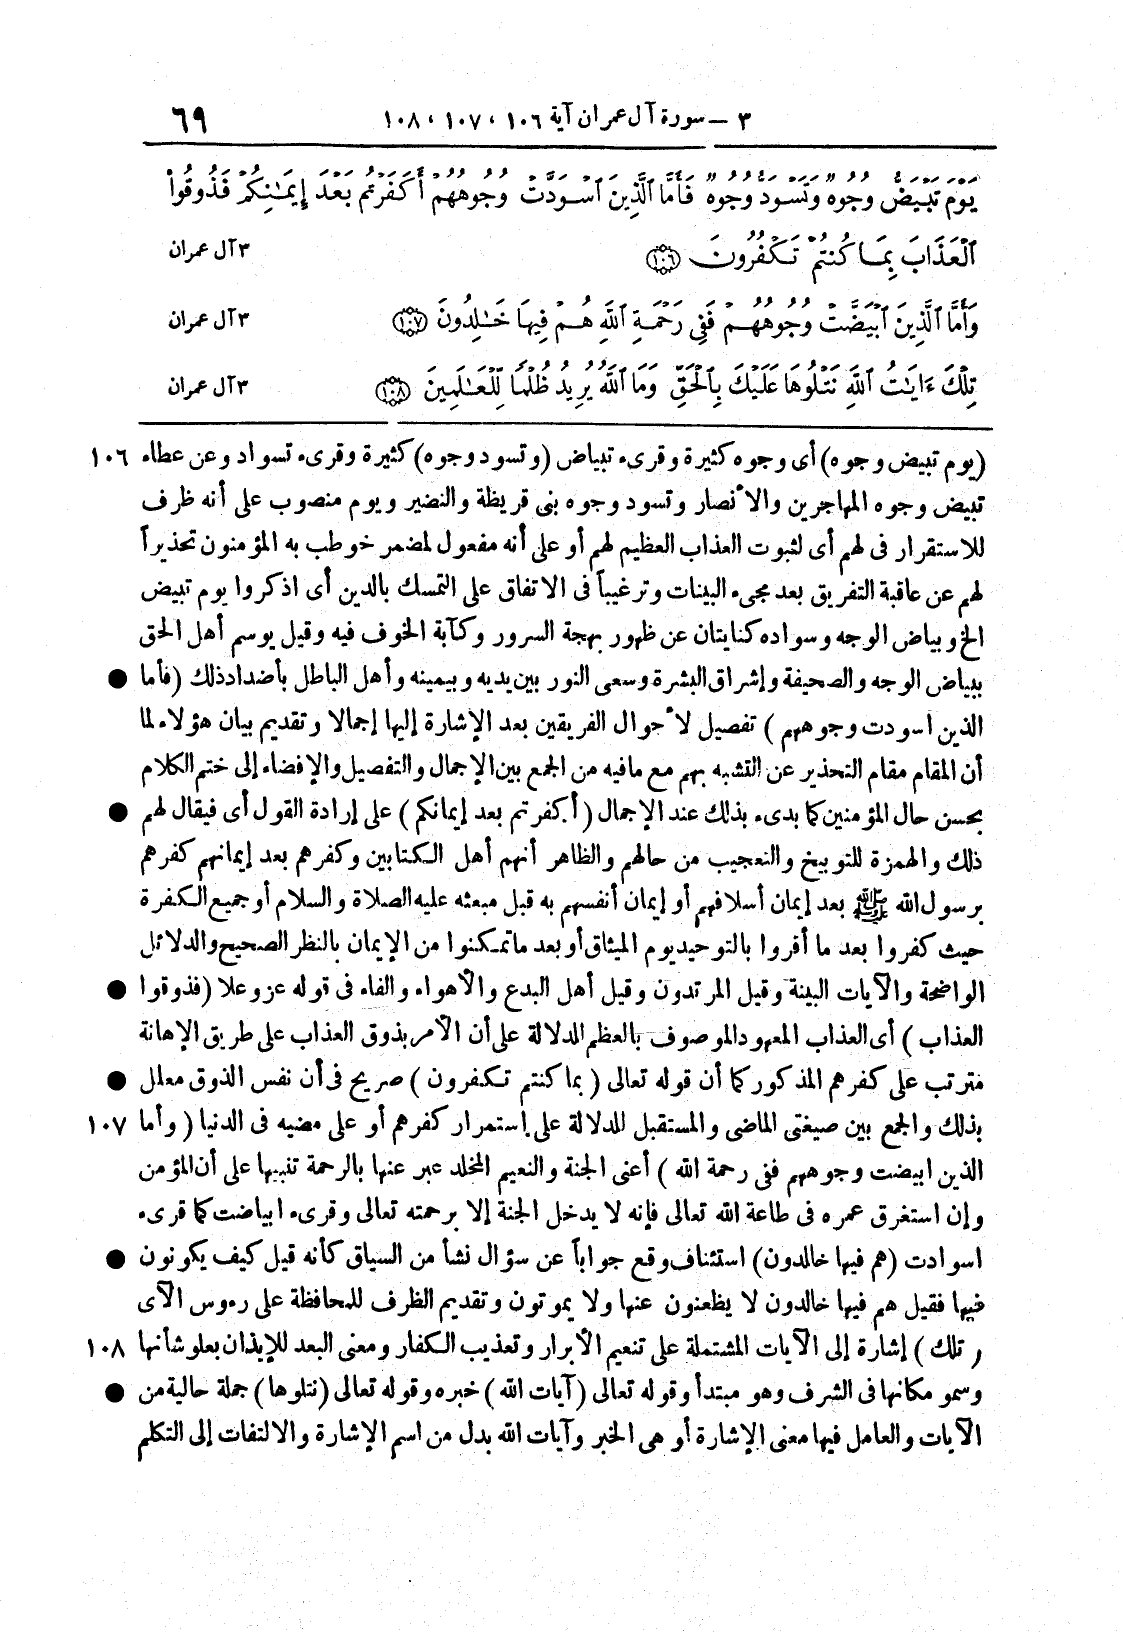 ٣ – سورة آل عمران آية ١٠٦ ، ١٠٧ ، ١٠٨ ٦٩
يَوْمَ تَبْيَضُّ وُجُوهٌ وَتَسْوَدُّ وُجُوهٌ فَأَمَّا ٱلَّذِينَ ٱسْوَدَّتْ وُجُوهُهُمْ أَكَفَرْتُم بَعْدَ إِيمَـٰنِكُمْ فَذُوقُوا۟
ٱلْعَذَابَ بِمَا كُنتُمْ تَكْفُرُونَ ١٠٦ ٣ آل عمران
وَأَمَّا ٱلَّذِينَ ٱبْيَضَّتْ وُجُوهُهُمْ فَفِى رَحْمَةِ ٱللَّهِ هُمْ فِيهَا خَـٰلِدُونَ ١٠٧ ٣ آل عمران
تِلْكَ ءَايَـٰتُ ٱللَّهِ نَتْلُوهَا عَلَيْكَ بِٱلْحَقِّ وَمَا ٱللَّهُ يُرِيدُ ظُلْمًا لِّلْعَـٰلَمِينَ ١٠٨ ٣ آل عمران
(يوم تبيض وجوه) أى وجوه كثيرة وقرىء تبياض (وتسود وجوه) كثيرة وقرىء تسواد وعن عطاء ١٠٦
تبيض وجوه المهاجرين والأنصار وتسود وجوه بنى قريظة والنضير ويوم منصوب على أنه ظرف
للاستقرار فى لهم أى لثبوت العذاب العظيم لهم أو على أنه مفعول لمضمر خوطب به المؤمنون تحذيراً
لهم عن عاقبة التفريق بعد مجىء البينات وترغيباً فى الاتفاق على التمسك بالدين أى اذكروا يوم تبيض
الخ وبياض الوجه وسواده كنايتان عن ظهور بهجة السرور وكآبة الخوف فيه وقيل يوسم أهل الحق
ببياض الوجه والصحيفة وإشراق البشرة وسعى النور بين يديه وبيمينه وأهل الباطل بأضداد ذلك (فأما ●
الذين اسودت وجوههم ) تفصيل لأحوال الفريقين بعد الإشارة إليها إجمالا وتقديم بيان هؤلاء لما
أن المقام مقام التحذير عن التشبه بهم مع مافيه من الجمع بين الإجمال والتفصيل والإفضاء إلى ختم الكلام
بحسن حال المؤمنين كما بدىء بذلك عند الإجمال ( أكفرتم بعد إيمانكم ) على إرادة القول أى فيقال لهم ●
ذلك والهمزة للتوبيخ والتعجيب من حالهم والظاهر أنهم أهل الكتابين وكفرهم بعد إيمانهم كفرهم
برسول الله ﷺ بعد إيمان أسلافهم أو إيمان أنفسهم به قبل مبعثه عليه الصلاة والسلام أو جميع الكفرة
حيث كفروا بعد ما أقروا بالتوحيد يوم الميثاق أو بعد ماتمكنوا من الإيمان بالنظر الصحيح والدلائل
الواضحة والآيات البينة وقيل المرتدون وقيل أهل البدع والأهواء والفاء فى قوله عز وعلا (فذوقوا ●
العذاب ) أى العذاب المعهود الموصوف بالعظم للدلالة على أن الأمر بذوق العذاب على طريق الإهانة
مترتب على كفرهم المذكور كما أن قوله تعالى ( بما كنتم تكفرون ) صريح فى أن نفس الذوق معلل ●
بذلك والجمع بين صيغتى الماضى والمستقبل للدلالة على استمرار كفرهم أو على مضيه فى الدنيا ( وأما ١٠٧
الذين ابيضت وجوههم ففى رحمة الله ) أعنى الجنة والنعيم المخلد عبر عنها بالرحمة تنبيها على أن المؤمن
وإن استغرق عمره فى طاعة الله تعالى فإنه لا يدخل الجنة إلا برحمته تعالى وقرىء ابياضت كما قرىء
اسوادت (هم فيها خالدون) استئناف وقع جواباً عن سؤال نشأ من السياق كأنه قيل كيف يكونون ●
فيها فقيل هم فيها خالدون لا يظعنون عنها ولا يموتون وتقديم الظرف للمحافظة على رءوس الآى
( تلك ) إشارة إلى الآيات المشتملة على تنعيم الأبرار وتعذيب الكفار ومعنى البعد للإيذان بعلو شأنها ١٠٨
وسمو مكانها فى الشرف وهو مبتدأ وقوله تعالى (آيات الله ) خبره وقوله تعالى (نتلوها) جملة حالية من ●
الآيات والعامل فيها معنى الإشارة أو هى الخبر وآيات الله بدل من اسم الإشارة والالتفات إلى التكلم